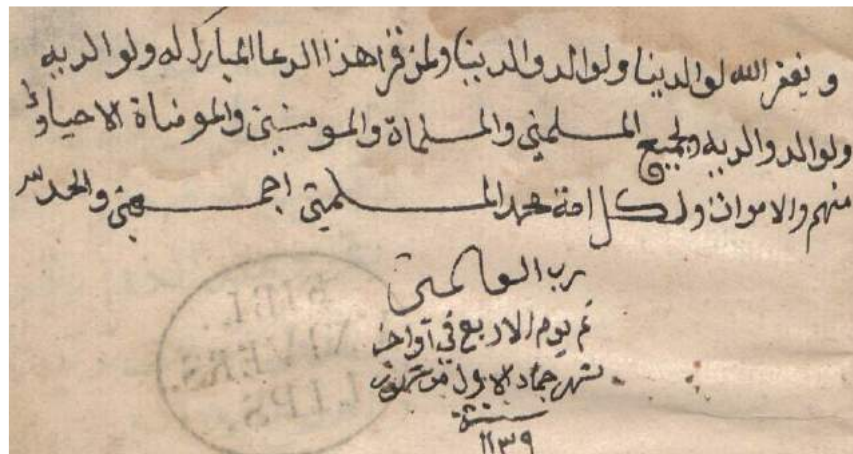 ويغفر الله لوالدينا ولوالد والدينا ولمن قرا هذا الدعا المبارك له ولوالديه
ولوالد والديه ولجميع المسلمين والمسلماة والمومنين والمومناة الاحياء
منهم والاموات ولكل امة محمد المسلمين اجمعين والحمد لله
رب العالمين
تم يوم الاربع في اواخر
شهر جماد الاول من شهور
سنة
١١٣٩
BIBL.
NIVERS.
LIPS.